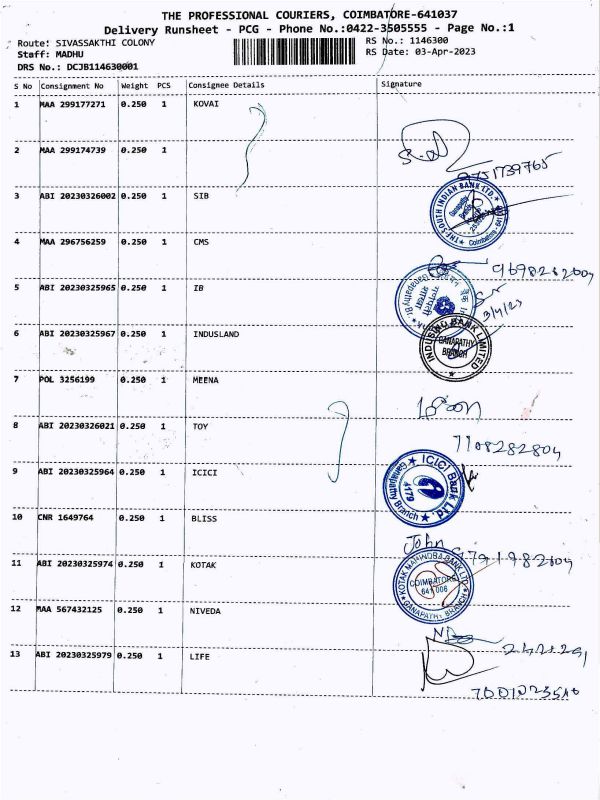 THE PROFESSIONAL COURIERS, COIMBATORE-641037
Delivery Runsheet - PCG - Phone No.:0422-3505555 - Page No.:1
Route: SIVASSAKTHI COLONY RS No.: 1146300
Staff: MADHU RS Date: 03-Apr-2023
DRS No.: DCJB114630001
S No Consignment No Weight PCS Consignee Details Signature
1 MAA 299177271 0.250 1 KOVAI
2 MAA 299174739 0.250 1
9751739765
3 ABI 20230326002 0.250 1 SIB
THE SOUTH INDIAN BANK LTD. Ganapathy Coimbatore
4 MAA 296756259 0.250 1 CMS
9698262604
5 ABI 20230325965 0.250 1 IB
3/4/23
6 ABI 20230325967 0.250 1 INDUSLAND
INDUSIND BANK LIMITED GANAPATHY BRANCH
7 POL 3256199 0.250 1 MEENA
8 ABI 20230326021 0.250 1 TOY
7108282804
9 ABI 20230325964 0.250 1 ICICI
ICICI Bank Ltd. Ganapathy Branch 4179
10 CNR 1649764 0.250 1 BLISS
John
11 ABI 20230325974 0.250 1 KOTAK
KOTAK MAHINDRA BANK LTD. COIMBATORE 641 006 GANAPATHY BRANCH
12 MAA 567432125 0.250 1 NIVEDA
13 ABI 20230325979 0.250 1 LIFE